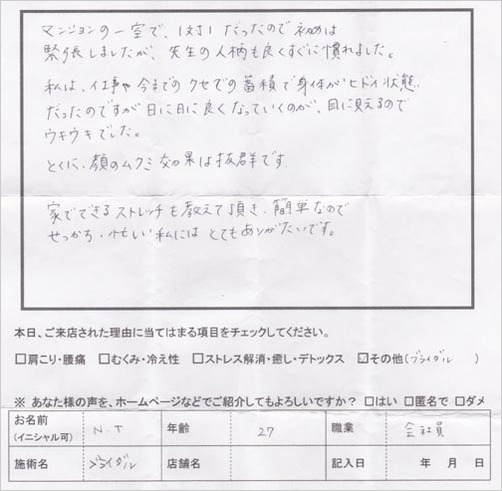 マンションの一室で、1対1だったので初めは
緊張しましたが、先生の人柄も良くすぐに慣れました。
私は、仕事や今までのクセでの蓄積で身体がヒドイ状態
だったのですが日に日に良くなっていくのが、目に見えるので
ウキウキでした。
とくに、顔のムクミ効果は抜群です
家でできるストレッチも教えて頂き、簡単なので
せっかち・忙しい私にはとてもありがたいです。
本日、ご来店された理由に当てはまる項目をチェックしてください。
□肩こり・腰痛 □むくみ・冷え性 □ストレス解消・癒し・デトックス ☑その他(ブライダル)
※ あなた様の声を、ホームページなどでご紹介してもよろしいですか? □はい □匿名で □ダメ
お名前 (イニシャル可) N.T 年齢 27 職業 会社員
施術名 ブライダル 店舗名 記入日 年 月 日